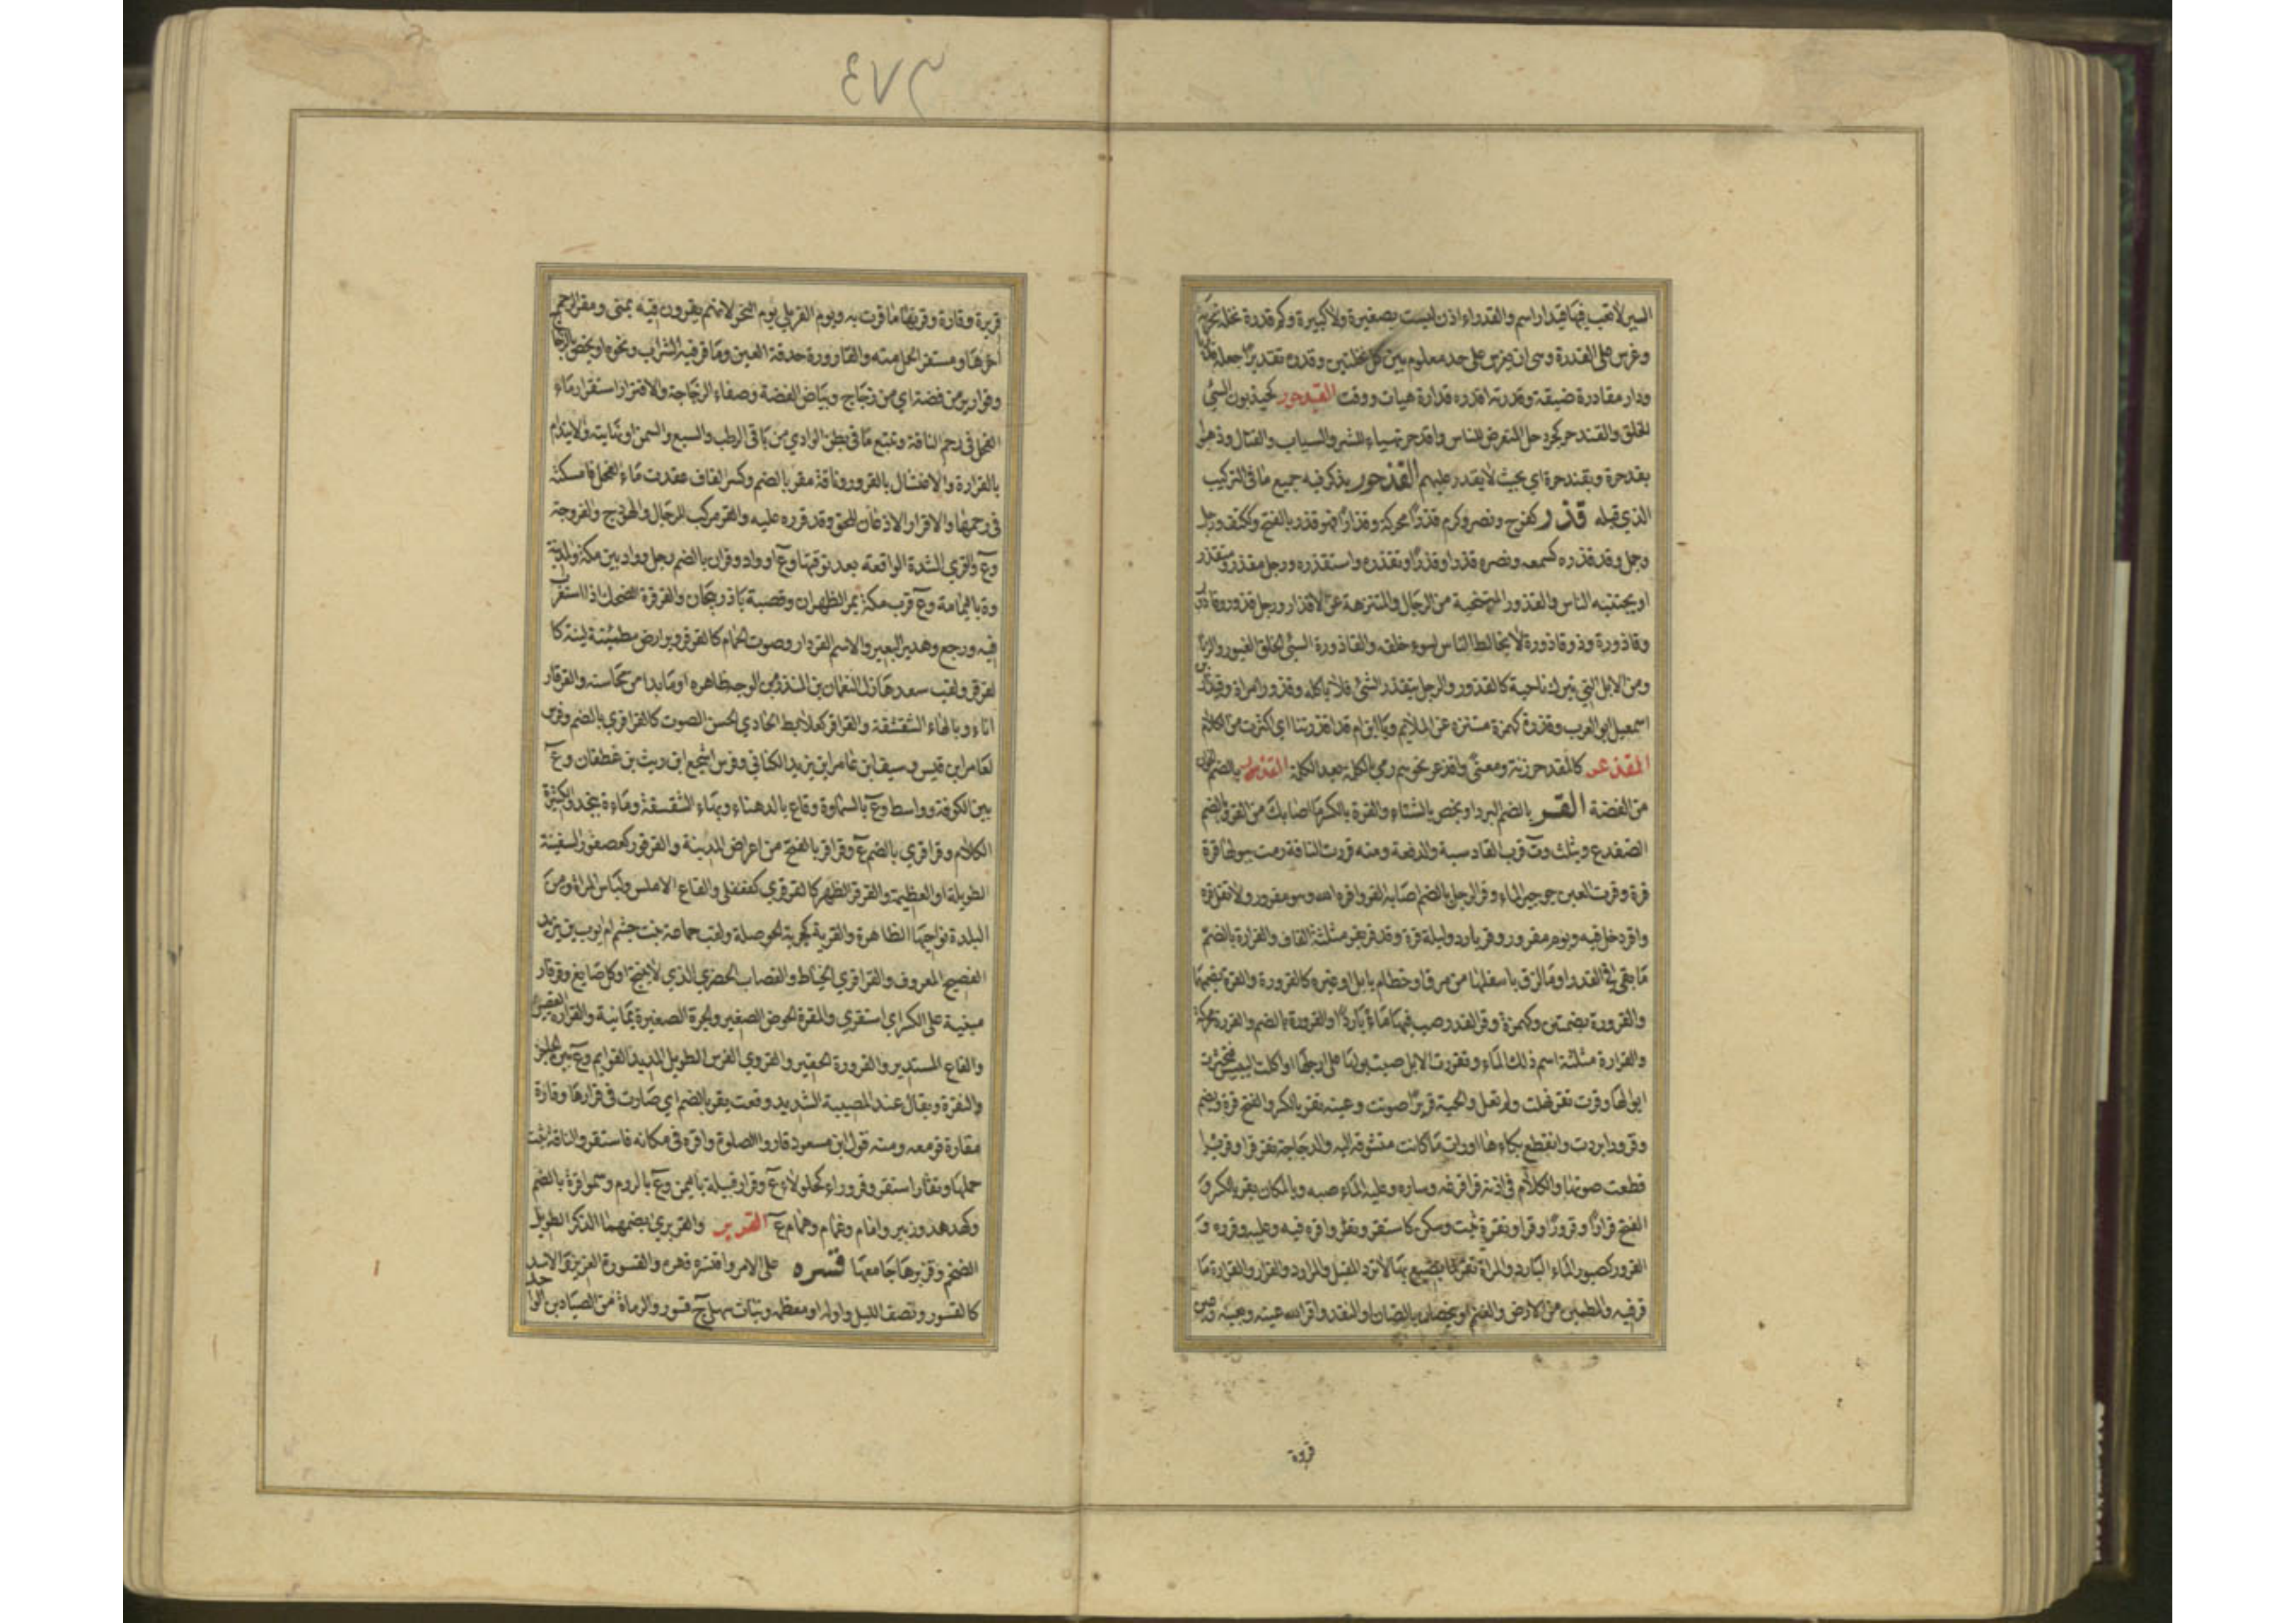 السير لاتعب فيها قيدار اسم والقدراء اذن ليست بصغيرة ولا كبيرة وكم قدرة نخله محركة
وغرس على القدرة وهي ان يغرس على حد معلوم بين كل نخلتين وقدره تقديرا جعله
ودار مقادرة ضيقة وقدرته اقدره قدارة هيات ووقت القيدحور كحيزبون السئ
الخلق والقندحر كجردحل المتعرض للناس واقدحر تهياء للشر والسباب والقتال وذهبوا
بقدحرة وبقندحرة اي بحيث لا يقدر عليهم القذحور يذكر فيه جميع ما في التركيب
الذي قبله قذر كفرح ونصر وكرم قذرا محركة وقذارا فهو قذر بالفتح وككتف ورجل
وجمل وقد قذره كسمعه ونصره قذرا وقذرا وتقذره واستقذره ورجل مقذر متقذر
او يجتنبه الناس والقذور المتنحية من الرجال والمتنزهة عن الاقذار ورجل قذور وقاذور
وقاذورة وذو قاذورة لا يخالط الناس لسوء خلقه والقاذورة السئ الخلق الغيور والزنا
ومن الابل التي تبرك ناحية كالقذور والرجل يتقذر الشئ فلا ياكله وقذور امراة وقيذار بن
اسمعيل ابو العرب وقذرة كهمزة متنزه عن الملايم ويا ابن ام قد اقذرتنا اي اكثرت من الكلام
المقذعر كالمقدحر زنة ومعنى واقذعر نحوهم رمى بالكلمة بعد الكلمة القذمور بالضم الخوان
من الفضة القر بالضم البرد او يخص بالشتاء والقرة بالكسر ما اصابك من القر وبالضم
الضفدع ويثلث وة قرب القادسية والدفعة ومنه قررت الناقة رمت ببولها قرة
قرة وقرت العين جرجير الماء وقر الرجل بالضم اصابه القر واقره الله وهو مقرور ولا تقل قره
واقر دخل فيه ويوم مقرور وقر بارد وليلة قرة وقد قر يقر مثلثة القاف والقرارة بالضم
ما بقي في القدر او ما لزق باسفلها من مرق او حطام يابل او غيره كالقرورة والقرة بضمها
والقرورة بضمتين وكهمزة وقر القدر صب فيها ماء باردا والقرورة بالضم والقررة محركة
والقرارة مثلثة اسم ذلك الماء وتقررت الابل صبت بولها على ارجلها او اكلت اليبيس فتخثرت
ابوالها وقرت تقر نهلت ولم تعل والحية قريرا صوتت وعينه تقر بالكسر والفتح قرة وتضم
وقرورا بردت وانقطع بكاءها او رات ما كانت متشوقة اليه والدجاجة تقر قرا وقريرا
قطعت صوتها والكلام في اذنه قرا فرغه وساره وعليه الماء صبه وبالمكان يقر بالكسر و
الفتح قرارا وقرورا وقرا وتقرة ثبت وسكن كاستقر وتقار واقره فيه وعليه وقرره و
القرور كصبور الماء البارد والمراة تقر لما يصنع بها لا ترد المقبل والمراود والقرار والقرارة ما
قر فيه والمطمئن من الارض والغنم او يخصان بالضان او النقد واقر الله عينه وعينه
قريرة
٤٧٣
قريرة وقارة وقرتها ما قرت به ويوم القر يلي يوم النحر لانهم يقرون فيه بمنى ومقر الرحم
اخرها ومستقر الحمل منه والقارورة حدقة العين وما قر فيه الشراب ونحوه او يخص بالزجاج
وقوارير من فضة اي من زجاج وبياض الفضة وصفاء الزجاجة والاقترار استقرار ماء
الفحل في رحم الناقة وتتبع ما في بطن الوادي من باقي الرطب والشبع والسمن او نهايته والايتدام
بالقرارة والاغتسال بالقرور وناقة مقر بالضم وكسر القاف عقدت ماء الفحل فامسكته
في رحمها والاقرار الاذعان للحق وقد قرره عليه والقر مركب للرجال والهودج والفروجة
وع والقري الشدة الواقعة بعد توقيها وع او واد وقران بالضم رجل وواد بين مكة والمدينة
وة باليمامة وع قرب مكة بمر الظهران وقصبة باذربيجان والقرقرة الضحك اذا استغرب
فيه ورجع وهدير البعير والاسم القرقار وصوت الحمام كالقرقرير وارض مطمئنة لينة كا
لقرقر ولقب سعد هازل النعمان بن المنذر ومن الوجه ظاهره او ما بدا من محاسنه والقرقار
اناء وبالهاء الشقشقة والقراقر كعلابط الحادي الحسن الصوت كالقراقري بالضم وفرس
لعامر ابن قيس وسيف ابن عامر ابن يزيد الكناني وفرس اشجع ابن ريث بن غطفان وع
بين الكوفة وواسط وع بالسماوة وقاع بالدهناء وبهاء الشقشقة وماءة بنجد والكثيرة
الكلام وقراقري بالضم ع وقراقر بالفتح من اعراض المدينة والقرقور كعصفور السفينة
الطويلة او العظيمة والقرقر الظهر كالقرقري كفعفلى والقاع الاملس ولباس المراة ومن
البلدة نواحيها الظاهرة والقرية كجرية الحوصلة ولقب جماعة بنت جشم ام ايوب بن يزيد
الفصيح المعروف والقراقري الخياط والقصاب الحضري الذي لا ينتجع او كل صانع وقرقار
مبنية على الكسر اي استقري والمقرة الحوض الصغير والجرة الصغيرة يمانية والقرارة القصير
والقاع المستدير والقرورة الحقير والقروري الفرس الطويل المديد القوايم وع بين الحاجز
والنقرة ويقال عند المصيبة الشديد وقعت بقر بالضم اي صارت في قرارها وقارة
مقارة قر معه ومنه قول ابن مسعود قاروا الصلوة واقره في مكانه فاستقر والناقة ثبت
حملها وتقار استقر وقروراء كجلولاء ع وقرار قبيلة باليمن وع بالروم وسموا قرة بالضم
وكهدهد وزبير وامام وغمام وهمام ع القزبر والقزبري بضمهما الذكر الطويل
الضخم وقزبرها جامعها قسره على الامر واقتسره قهره والقسورة العزيز والاسد
كالقسور ونصف الليل واوله او معظمه ونبات سهلي ج قسور والرماة من الصيادين الواحد